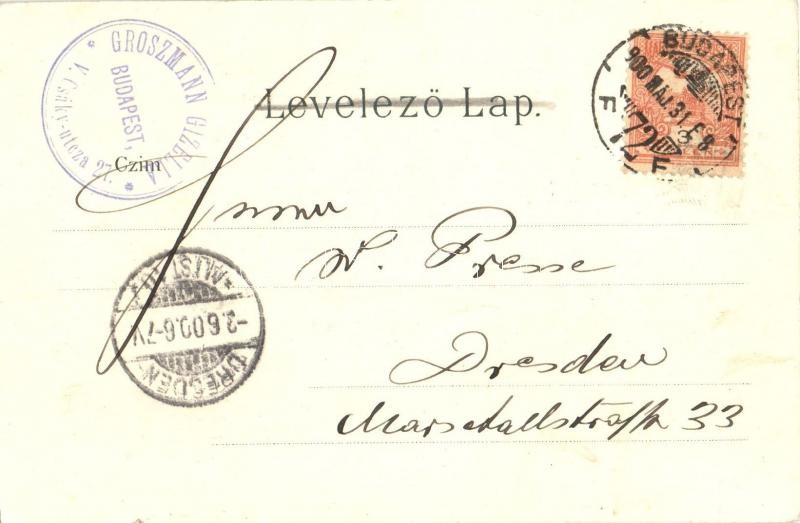 GROSZMANN GIZELLA
BUDAPEST,
* V. Csáky-utcza 27. *
BUDAPEST
900 MÁJ. 31
72
Levelező Lap.
Czim
W. Presse
Dresden
Marschallstraße 33
DRESDEN-ALTST.
-3.6.00.6-7V